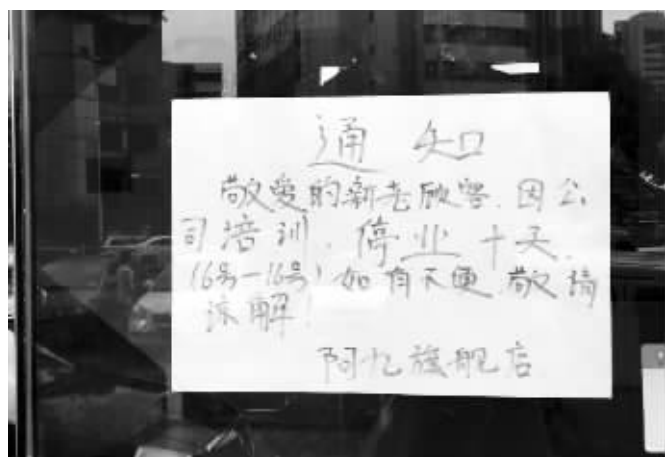 通知
敬爱的新老顾客.因公
司培训.停业十天.
(6号一16号)如有不便敬请
谅解.
阿九旗舰店